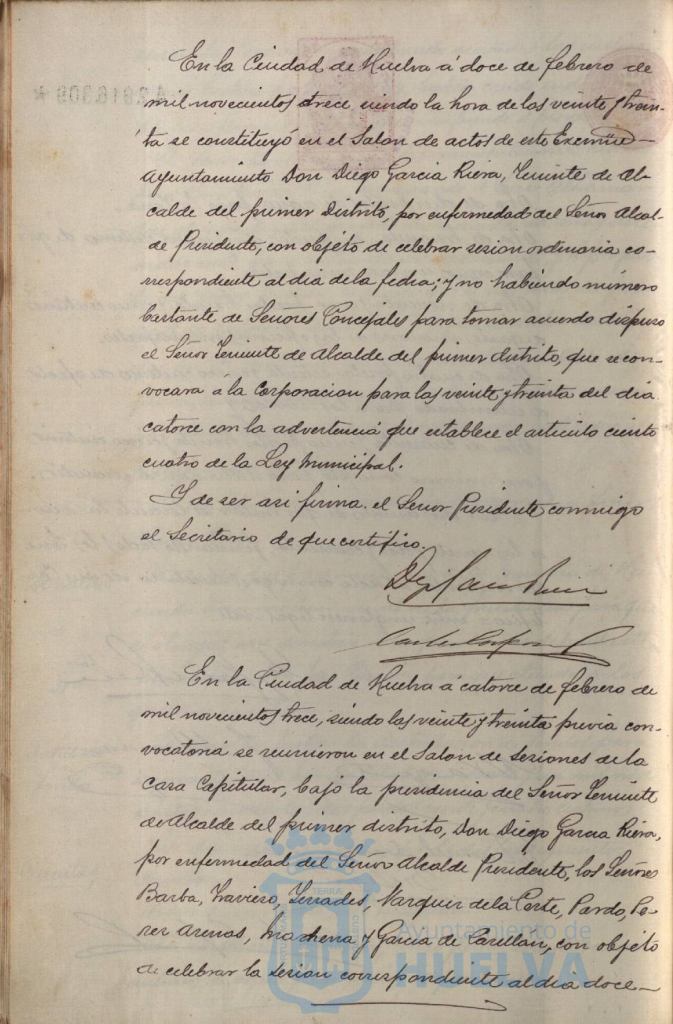 En la Ciudad de Huelva á doce de febrero de
mil novecientos trece, siendo la hora de las veinte y trein-
ta se constituyó en el Salon de actos de este Excmo
Ayuntamiento Don Diego Garcia Riera, Teniente de Al-
calde del primer Distrito, por enfermedad del Señor Alcal-
de Presidente, con objeto de celebrar sesion ordinaria co-
rrespondiente al dia de la fecha; y no habiendo número
bastante de Señores Concejales para tomar acuerdo dispuso
el Señor Teniente de Alcalde del primer distrito, que se con-
vocara á la Corporacion para las veinte y treinta del dia
catorce con la advertencia que establece el articulo ciento
cuatro de la Ley Municipal.
Y de ser asi firma el Señor Presidente conmigo
el Secretario de que certifico.
En la Ciudad de Huelva á catorce de febrero de
mil novecientos trece, siendo las veinte y treinta previa con-
vocatoria se reunieron en el Salon de Sesiones de la
Casa Capitular, bajo la presidencia del Señor Teniente
de Alcalde del primer distrito, Don Diego Garcia Riera,
por enfermedad del Señor Alcalde Presidente, los Señores
Barba, Traviero, Terrades, Marquez de la Corte, Pardo, Pe-
rez Arenas, Machena y Garcia de Castellan, con objeto
de celebrar la sesion correspondiente al dia doce-
Ayuntamiento de
HUELVA